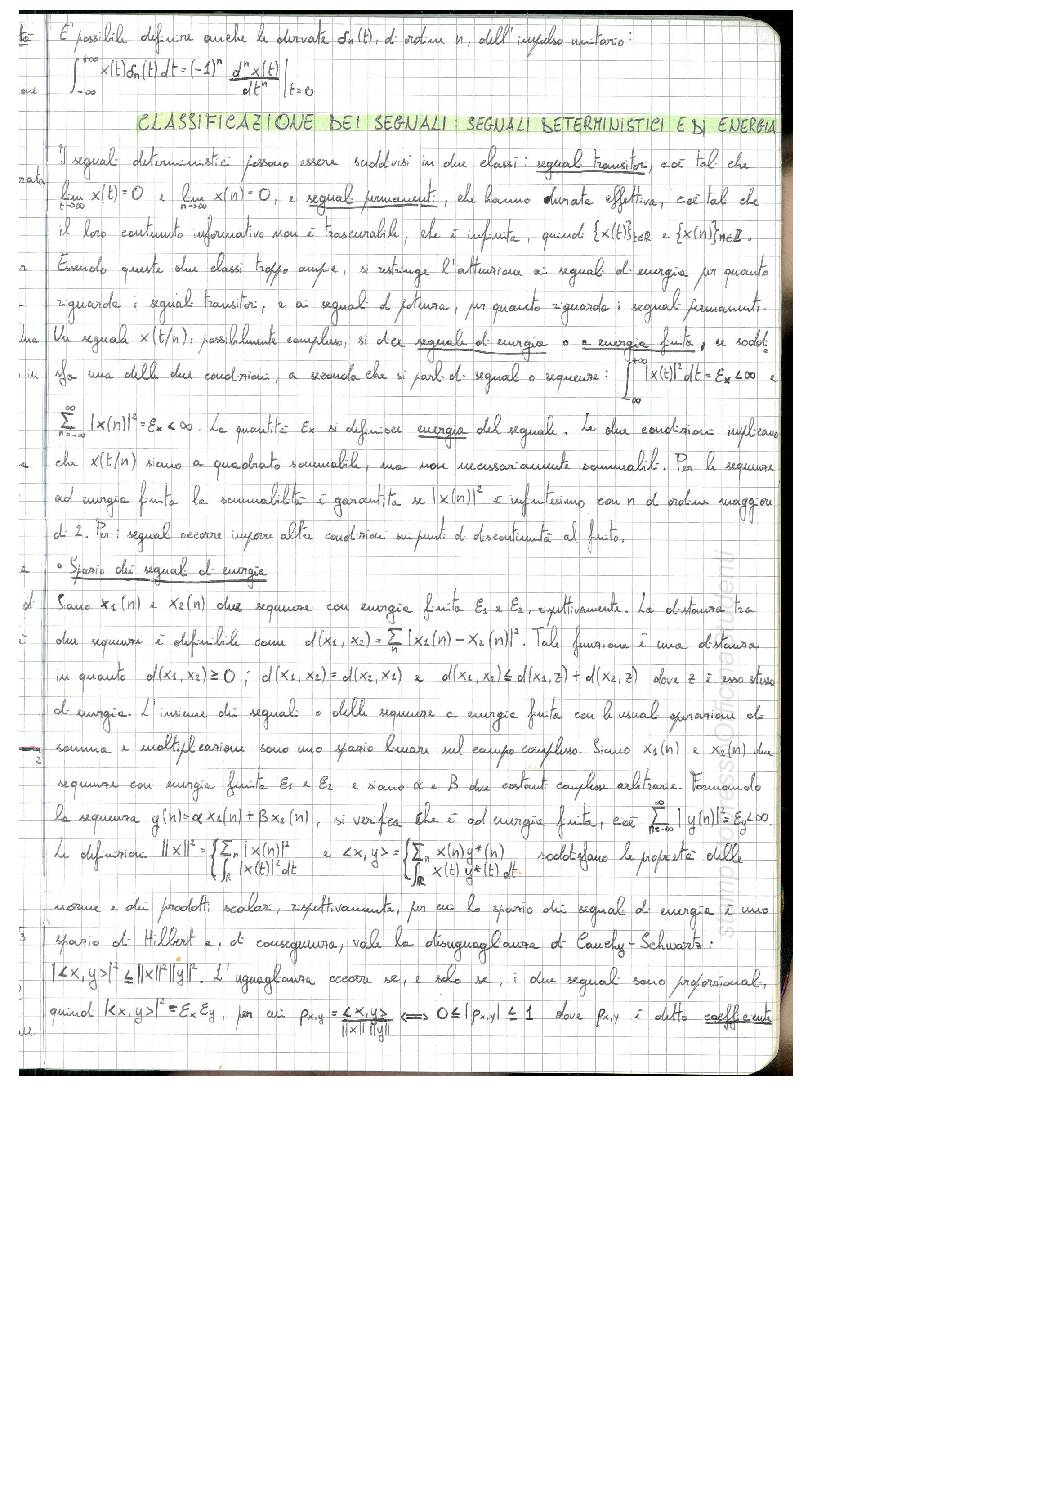 È possibile definire anche le derivate δn(t), di ordine n, dell'impulso unitario:
∫_{-∞}^{+∞} x(t)δn(t)dt = (-1)^n d^n x(t)/dt^n |_{t=0}
CLASSIFICAZIONE DEI SEGNALI: SEGNALI DETERMINISTICI E DI ENERGIA
I segnali deterministici possono essere suddivisi in due classi: segnali transitori, cioè tali che
lim_{t→∞} x(t)=0 e lim_{n→∞} x(n)=0, e segnali permanenti, che hanno durata effettiva, cioè tali che
il loro contenuto informativo non è trascurabile, che è infinita, quindi {x(t)}_{t∈ℝ} e {x(n)}_{n∈ℤ}.
Essendo queste due classi troppo ampie, si restringe l'attenzione ai segnali di energia per quanto
riguarda i segnali transitori, e ai segnali di potenza, per quanto riguarda i segnali permanenti.
Un segnale x(t/n), possibilmente complesso, si dice segnale di energia o a energia finita, se soddi
sfa una delle due condizioni, a seconda che si parli di segnali o sequenze: ∫_{-∞}^{+∞} |x(t)|² dt = Ex < ∞ e
∑_{n=-∞}^{∞} |x(n)|² = Ex < ∞. La quantità Ex si definisce energia del segnale. Le due condizioni implicano
che x(t/n) siano a quadrato sommabile, ma non necessariamente sommabili. Per le sequenze
ad energia finita la sommabilità è garantita se |x(n)|² è infinitesimo con n di ordine maggiore
di 2. Per i segnali occorre imporre altre condizioni sui punti di discontinuità al finito.
• Spazio dei segnali di energia
Siano x1(n) e x2(n) due sequenze con energia finita E1 e E2, rispettivamente. La distanza tra
due sequenze è definibile come d(x1,x2) = ∑_n |x1(n)-x2(n)|². Tale funzione è una distanza
in quanto d(x1,x2)≥0; d(x1,x2)=d(x2,x1) e d(x1,x2)≤d(x1,z)+d(x2,z) dove z è esso stesso
di energia. L'insieme dei segnali o delle sequenze a energia finita con le usuali operazioni di
somma e moltiplicazione sono uno spazio lineare sul campo complesso. Siano x1(n) e x2(n) due
sequenze con energia finita E1 e E2 e siano α e β due costanti complesse arbitrarie. Formando
la sequenza y(n)=αx1(n)+βx2(n), si verifica che è ad energia finita, cioè ∑_{n=-∞}^{∞} |y(n)|²=Ey<∞.
Le definizioni ||x||² = { ∑_n |x(n)|² e <x,y> = { ∑_n x(n)y*(n) soddisfano le proprietà delle
∫_ℝ |x(t)|² dt ∫_ℝ x(t)y*(t)dt
norme e dei prodotti scalari, rispettivamente, per cui lo spazio dei segnali di energia è uno
spazio di Hilbert e, di conseguenza, vale la disuguaglianza di Cauchy-Schwartz:
|<x,y>|² ≤ ||x||²||y||². L'uguaglianza occorre se, e solo se, i due segnali sono proporzionali,
quindi |<x,y>|² = Ex Ey, per cui ρx,y = <x,y>/||x|| ||y|| ⟺ 0≤|ρx,y|≤1 dove ρx,y è detto coefficiente